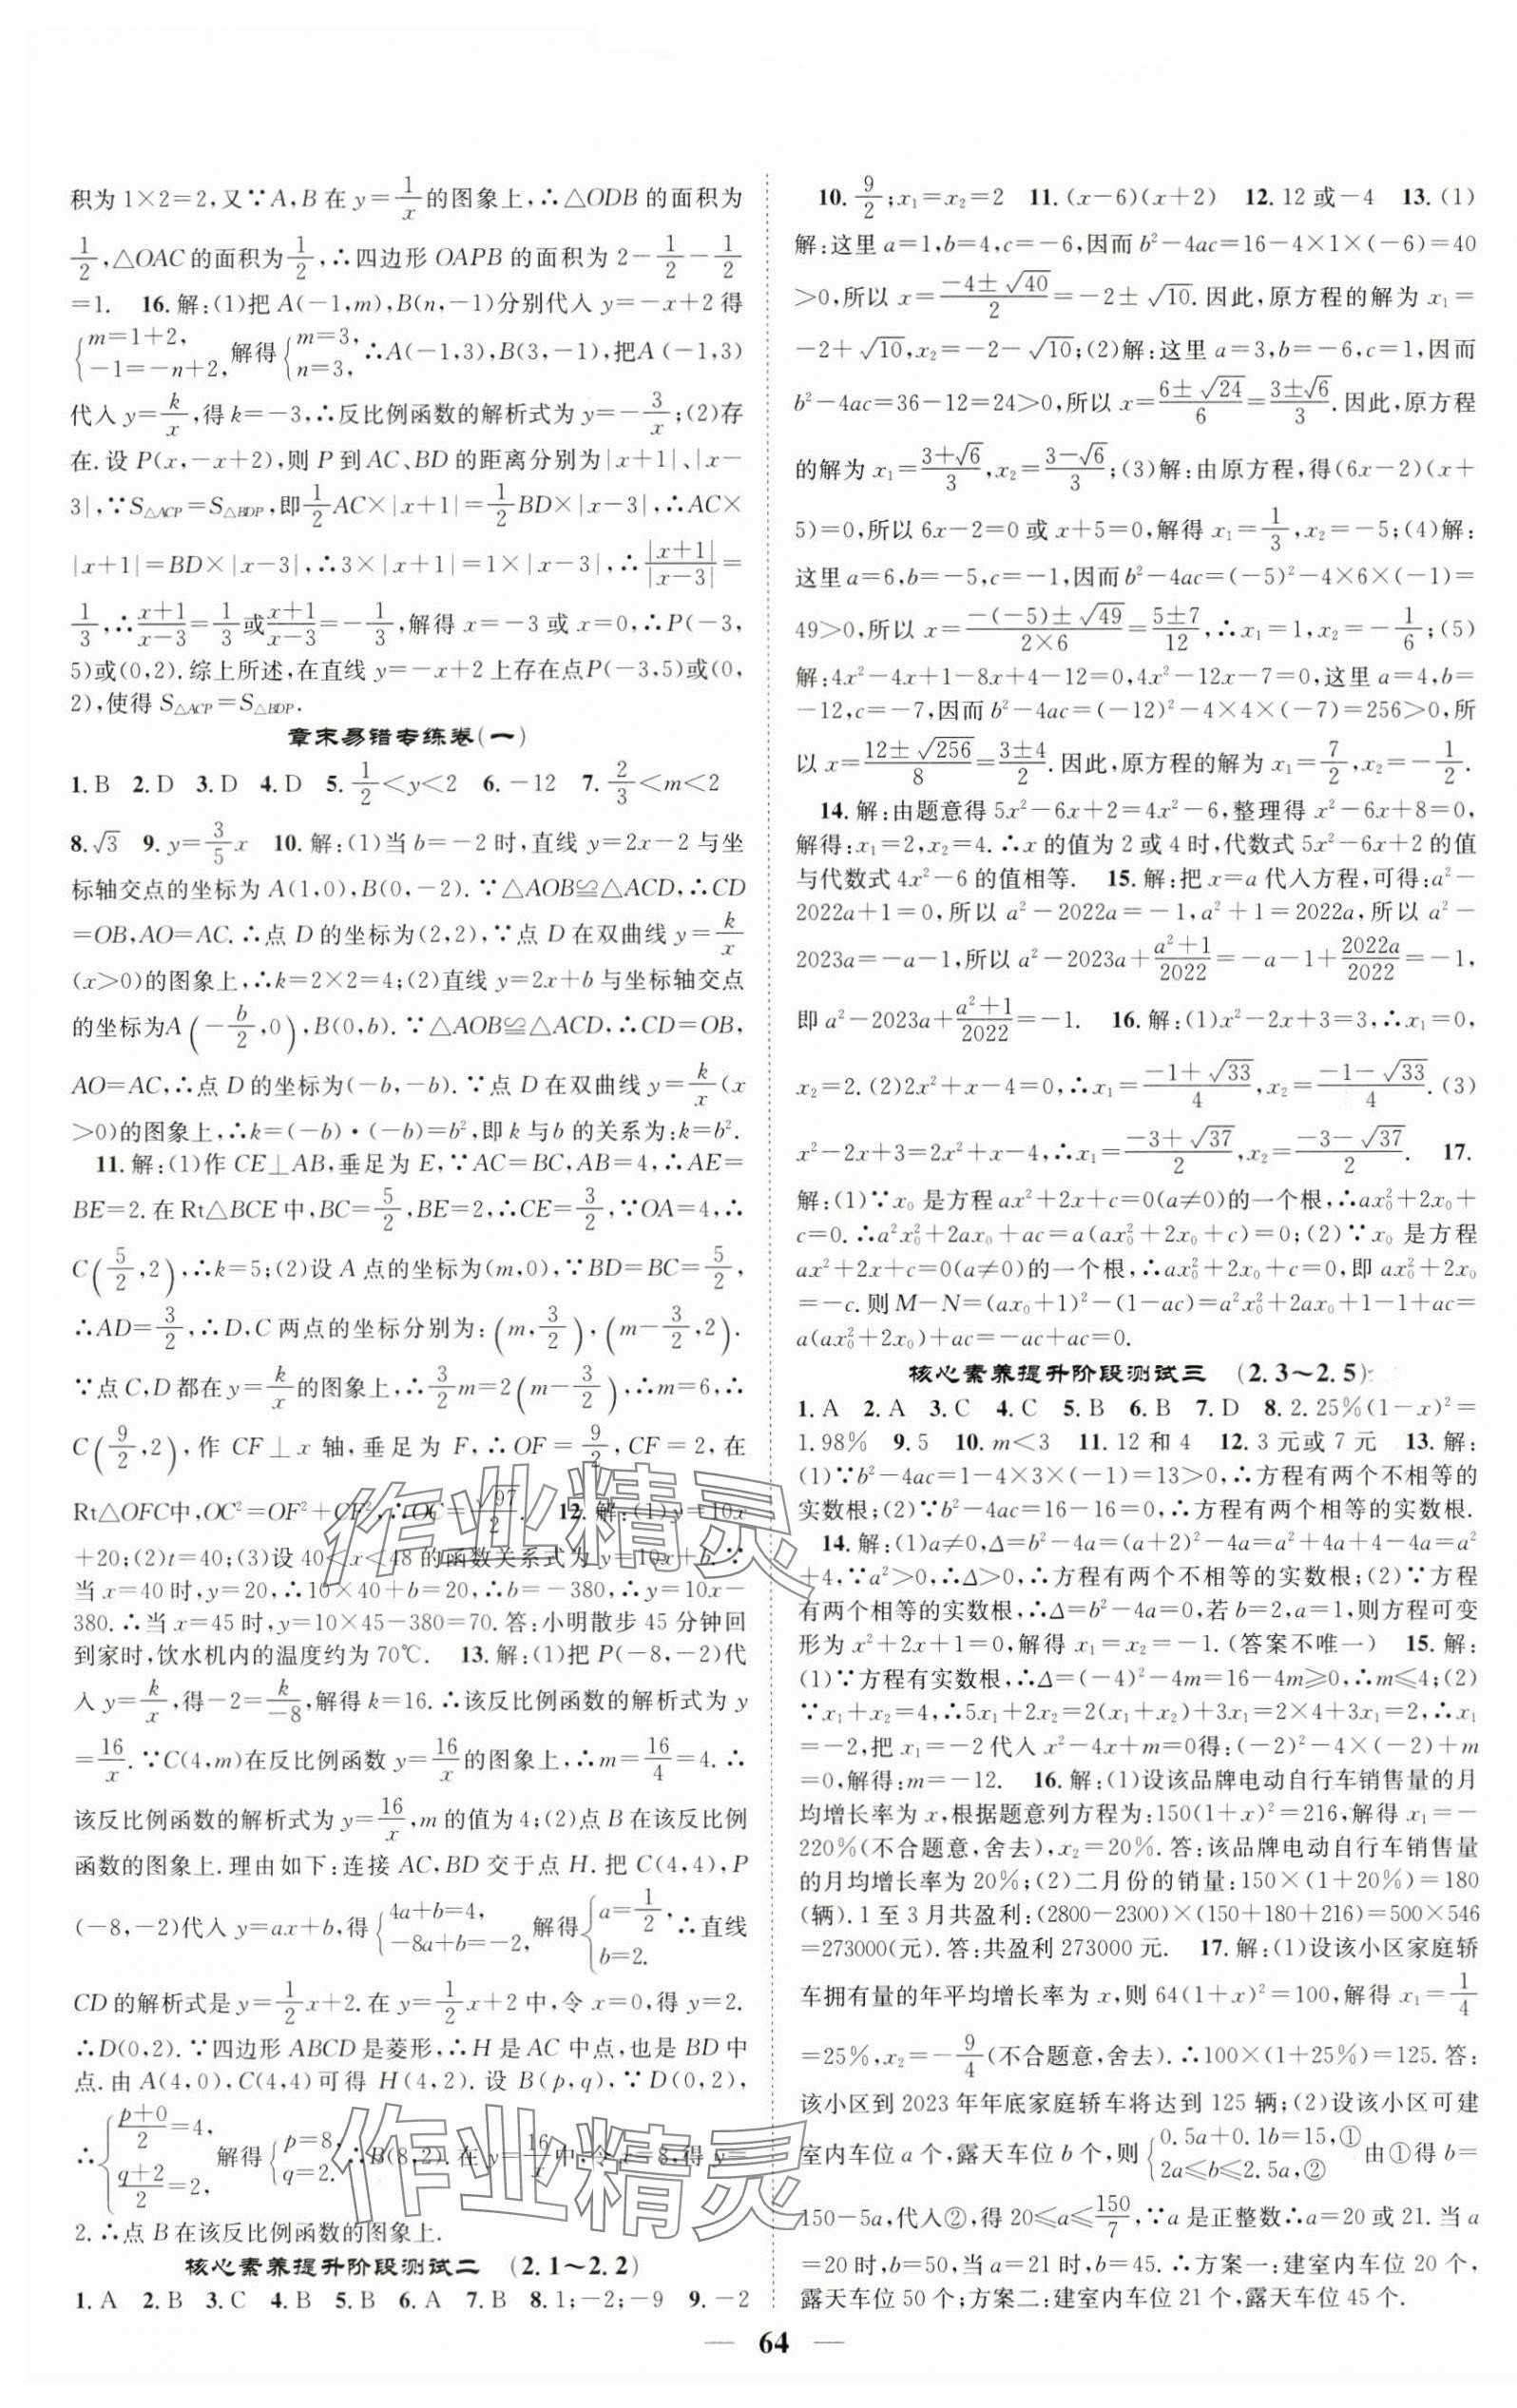 积为1×2=2,又∵A,B在y=1/x的图象上,∴△ODB的面积为
1/2,△OAC的面积为1/2,∴四边形OAPB的面积为2-1/2-1/2
=1. 16.解:(1)把A(-1,m),B(n,-1)分别代入y=-x+2得
{m=1+2, -1=-n+2, 解得{m=3, n=3, ∴A(-1,3),B(3,-1),把A(-1,3)
代入y=k/x,得k=-3,∴反比例函数的解析式为y=-3/x;(2)存
在.设P(x,-x+2),则P到AC、BD的距离分别为|x+1|、|x-
3|,∵S△ACP=S△BDP,即1/2AC×|x+1|=1/2BD×|x-3|,∴AC×
|x+1|=BD×|x-3|,∴3×|x+1|=1×|x-3|,∴|x+1|/|x-3|=
1/3,∴(x+1)/(x-3)=1/3或(x+1)/(x-3)=-1/3,解得x=-3或x=0,∴P(-3,
5)或(0,2).综上所述,在直线y=-x+2上存在点P(-3,5)或(0,
2),使得S△ACP=S△BDP.
章末易错专练卷(一)
1.B 2.D 3.D 4.D 5.1/2<y<2 6.-12 7.2/3<m<2
8.√3 9.y=3/5x 10.解:(1)当b=-2时,直线y=2x-2与坐
标轴交点的坐标为A(1,0),B(0,-2).∵△AOB≌△ACD,∴CD
=OB,AO=AC.∴点D的坐标为(2,2),∵点D在双曲线y=k/x
(x>0)的图象上,∴k=2×2=4;(2)直线y=2x+b与坐标轴交点
的坐标为A(-b/2,0),B(0,b).∵△AOB≌△ACD,∴CD=OB,
AO=AC,∴点D的坐标为(-b,-b).∵点D在双曲线y=k/x(x
>0)的图象上,∴k=(-b)·(-b)=b²,即k与b的关系为:k=b².
11.解:(1)作CE⊥AB,垂足为E,∵AC=BC,AB=4,∴AE=
BE=2.在Rt△BCE中,BC=5/2,BE=2,∴CE=3/2,∵OA=4,∴
C(5/2,2),∴k=5;(2)设A点的坐标为(m,0),∵BD=BC=5/2,
∴AD=3/2,∴D,C两点的坐标分别为:(m,3/2),(m-3/2,2).
∵点C,D都在y=k/x的图象上,∴3/2m=2(m-3/2),∴m=6,∴
C(9/2,2),作CF⊥x轴,垂足为F,∴OF=9/2,CF=2,在
Rt△OFC中,OC²=OF²+CF²,∴OC=√97/2. 12.解:(1)y=10x
+20;(2)t=40;(3)设40<x<48的函数关系式为y=10x+b.∵
当x=40时,y=20,∴10×40+b=20,∴b=-380,∴y=10x-
380.∴当x=45时,y=10×45-380=70.答:小明散步45分钟回
到家时,饮水机内的温度约为70℃. 13.解:(1)把P(-8,-2)代
入y=k/x,得-2=k/-8,解得k=16.∴该反比例函数的解析式为y
=16/x.∵C(4,m)在反比例函数y=16/x的图象上,∴m=16/4=4.∴
该反比例函数的解析式为y=16/x,m的值为4;(2)点B在该反比例
函数的图象上.理由如下:连接AC,BD交于点H.把C(4,4),P
(-8,-2)代入y=ax+b,得{4a+b=4, -8a+b=-2, 解得{a=1/2, b=2. ∴直线
CD的解析式是y=1/2x+2.在y=1/2x+2中,令x=0,得y=2.
∴D(0,2).∵四边形ABCD是菱形,∴H是AC中点,也是BD中
点.由A(4,0),C(4,4)可得H(4,2).设B(p,q),∵D(0,2),
∴{(p+0)/2=4, (q+2)/2=2, 解得{p=8, q=2. ∴B(8,2).在y=16/x中,令x=8,得y=
2.∴点B在该反比例函数的图象上.
核心素养提升阶段测试二 (2.1~2.2)
1.A 2.B 3.C 4.B 5.B 6.A 7.B 8.1;-2;-9 9.-2
10.9/2;x₁=x₂=2 11.(x-6)(x+2) 12.12或-4 13.(1)
解:这里a=1,b=4,c=-6,因而b²-4ac=16-4×1×(-6)=40
>0,所以x=(-4±√40)/2=-2±√10.因此,原方程的解为x₁=
-2+√10,x₂=-2-√10;(2)解:这里a=3,b=-6,c=1,因而
b²-4ac=36-12=24>0,所以x=(6±√24)/6=(3±√6)/3.因此,原方程
的解为x₁=(3+√6)/3,x₂=(3-√6)/3;(3)解:由原方程,得(6x-2)(x+
5)=0,所以6x-2=0或x+5=0,解得x₁=1/3,x₂=-5;(4)解:
这里a=6,b=-5,c=-1,因而b²-4ac=(-5)²-4×6×(-1)=
49>0,所以x=(-(-5)±√49)/(2×6)=(5±7)/12,∴x₁=1,x₂=-1/6;(5)
解:4x²-4x+1-8x+4-12=0,4x²-12x-7=0,这里a=4,b=
-12,c=-7,因而b²-4ac=(-12)²-4×4×(-7)=256>0,所
以x=(12±√256)/8=(3±4)/2.因此,原方程的解为x₁=7/2,x₂=-1/2.
14.解:由题意得5x²-6x+2=4x²-6,整理得x²-6x+8=0,
解得:x₁=2,x₂=4.∴x的值为2或4时,代数式5x²-6x+2的值
与代数式4x²-6的值相等. 15.解:把x=a代入方程,可得:a²-
2022a+1=0,所以a²-2022a=-1,a²+1=2022a,所以a²-
2023a=-a-1,所以a²-2023a+(a²+1)/2022=-a-1+2022a/2022=-1,
即a²-2023a+(a²+1)/2022=-1. 16.解:(1)x²-2x+3=3,∴x₁=0,
x₂=2.(2)2x²+x-4=0,∴x₁=(-1+√33)/4,x₂=(-1-√33)/4.(3)
x²-2x+3=2x²+x-4,∴x₁=(-3+√37)/2,x₂=(-3-√37)/2. 17.
解:(1)∵x₀是方程ax²+2x+c=0(a≠0)的一个根,∴ax₀²+2x₀+
c=0.∴a²x₀²+2ax₀+ac=a(ax₀²+2x₀+c)=0;(2)∵x₀是方程
ax²+2x+c=0(a≠0)的一个根,∴ax₀²+2x₀+c=0,即ax₀²+2x₀
=-c.则M-N=(ax₀+1)²-(1-ac)=a²x₀²+2ax₀+1-1+ac=
a(ax₀²+2x₀)+ac=-ac+ac=0.
核心素养提升阶段测试三 (2.3~2.5)
1.A 2.A 3.C 4.C 5.B 6.B 7.D 8.2.25%(1-x)²=
1.98% 9.5 10.m<3 11.12和4 12.3元或7元 13.解:
(1)∵b²-4ac=1-4×3×(-1)=13>0,∴方程有两个不相等的
实数根;(2)∵b²-4ac=16-16=0,∴方程有两个相等的实数根.
14.解:(1)a≠0,Δ=b²-4a=(a+2)²-4a=a²+4a+4-4a=a²
+4,∵a²>0,∴Δ>0,∴方程有两个不相等的实数根;(2)∵方程
有两个相等的实数根,∴Δ=b²-4a=0,若b=2,a=1,则方程可变
形为x²+2x+1=0,解得x₁=x₂=-1.(答案不唯一) 15.解:
(1)∵方程有实数根,∴Δ=(-4)²-4m=16-4m≥0,∴m≤4;(2)
∵x₁+x₂=4,∴5x₁+2x₂=2(x₁+x₂)+3x₁=2×4+3x₁=2,∴x₁
=-2,把x₁=-2代入x²-4x+m=0得:(-2)²-4×(-2)+m
=0,解得:m=-12. 16.解:(1)设该品牌电动自行车销售量的月
均增长率为x,根据题意列方程为:150(1+x)²=216,解得x₁=-
220%(不合题意,舍去),x₂=20%.答:该品牌电动自行车销售量
的月均增长率为20%;(2)二月份的销量:150×(1+20%)=180
(辆).1至3月共盈利:(2800-2300)×(150+180+216)=500×546
=273000(元).答:共盈利273000元. 17.解:(1)设该小区家庭轿
车拥有量的年平均增长率为x,则64(1+x)²=100,解得x₁=1/4
=25%,x₂=-9/4(不合题意,舍去).∴100×(1+25%)=125.答:
该小区到2023年年底家庭轿车将达到125辆;(2)设该小区可建
室内车位a个,露天车位b个,则{0.5a+0.1b=15,① 2a≤b≤2.5a,② 由①得b=
150-5a,代入②,得20≤a≤150/7,∵a是正整数∴a=20或21.当a
=20时,b=50,当a=21时,b=45.∴方案一:建室内车位20个,
露天车位50个;方案二:建室内车位21个,露天车位45个.
作业精灵
作业精灵
— 64 —